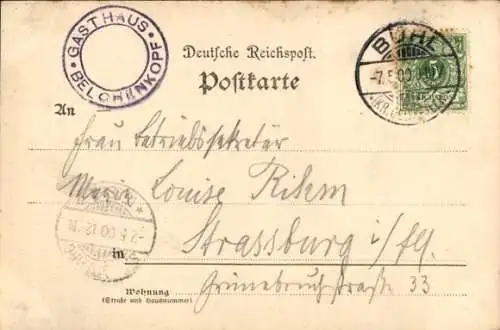 GASTHAUS
BELCHENKOPF
Deutsche Reichspost.
Postkarte
BÜHL
-7.5.00
An
Frau Betriebssekretär
Marie Louise Rihm
in Strassburg i/Els.
Grünebruchstraße 33
Wohnung
(Straße und Hausnummer)